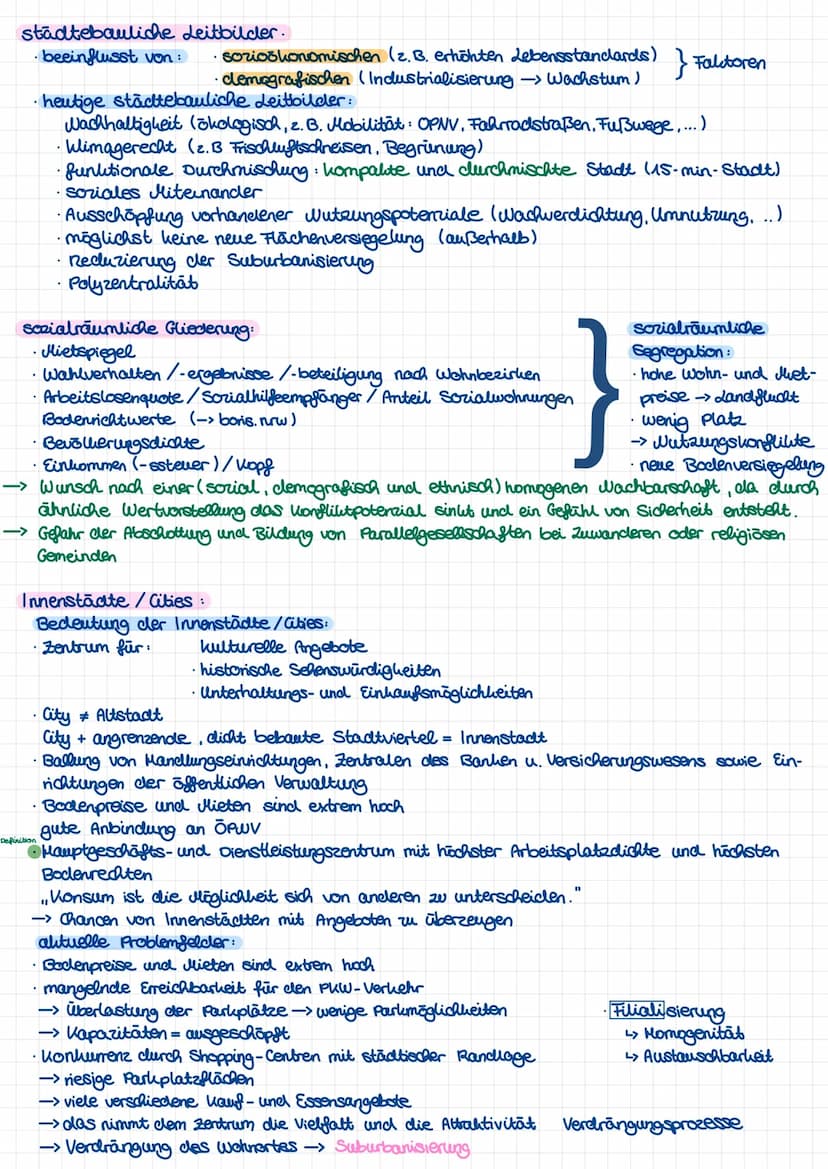 städtebauliche Leitbilder.
· beeinflusst von: · sozioökonomischen (z.B. erhöhten Lebensstandards) } Faktoren
· demografischen (Industrialisierung → Wachstum)
· heutige städtebauliche Leitbilder:
Nachhaltigkeit (ökologisch, z.B. Mobilität: ÖPNV, Fahrradstraßen, Fußwege, ...)
· klimagerecht (z.B Frischluftschneisen, Begrünung)
· funktionale Durchmischung: kompakte und durchmischte Stadt (15-min-Stadt)
· soziales Miteinander
· Ausschöpfung vorhandener Nutzungspotenziale (Nachverdichtung, Umnutzung, ..)
· möglichst keine neue Flächenversiegelung (außerhalb)
· Reduzierung der Suburbanisierung
· Polyzentralität
sozialräumliche Gliederung:
· Mietspiegel
· Wahlverhalten /-ergebnisse /-beteiligung nach Wohnbezirken
· Arbeitslosenquote / Sozialhilfeempfänger / Anteil Sozialwohnungen
Bodenrichtwerte (→ boris.nrw)
· Bevölkerungsdichte
· Einkommen (-esteuer) / Kopf
}
sozialräumliche
Segregation:
· hohe Wohn- und Miet-
preise → Landflucht
· wenig Platz
→ Nutzungskonflikte
· neue Bodenversiegelung
→ Wunsch nach einer (sozial, demografisch und ethnisch) homogenen Nachbarschaft, da durch
ähnliche Wertvorstellung das Konfliktpotenzial sinkt und ein Gefühl von Sicherheit entsteht.
→ Gefahr der Abschottung und Bildung von Parallelgesellschaften bei Zuwanderen oder religiösen
Gemeinden
Innenstädte / Cities :
Bedeutung der Innenstädte / Cities:
· Zentrum für: kulturelle Angebote
· historische Sehenswürdigkeiten
· Unterhaltungs- und Einkaufsmöglichkeiten
· City ≠ Altstadt
City + angrenzende, dicht bebaute Stadtviertel = Innenstadt
· Ballung von Handlungseinrichtungen, Zentralen des Banken u. Versicherungswesens sowie Ein-
richtungen der öffentlichen Verwaltung
· Bodenpreise und Mieten sind extrem hoch
gute Anbindung an ÖPNV
Definition
· Hauptgeschäfts- und Dienstleistungszentrum mit höchster Arbeitsplatzdichte und höchsten
Bodenrechten
„Konsum ist die Möglichkeit sich von anderen zu unterscheiden."
→ Chancen von Innenstädten mit Angeboten zu überzeugen
aktuelle Problemfelder:
· Bodenpreise und Mieten sind extrem hoch
· mangelnde Erreichbarkeit für den PKW-Verkehr
→ Überlastung der Parkplätze → wenige Parkmöglichkeiten
→ Kapazitäten = ausgeschöpft
· Filialisierung
↳ Homogenität
↳ Austauschbarkeit
· Konkurrenz durch Shopping-Centren mit städtischer Randlage
→ riesige Parkplatzflächen
→ viele verschiedene Kauf- und Essensangebote
→ das nimmt dem Zentrum die Vielfalt und die Attraktivität Verdrängungsprozesse
→ Verdrängung des Wohnortes → Suburbanisierung